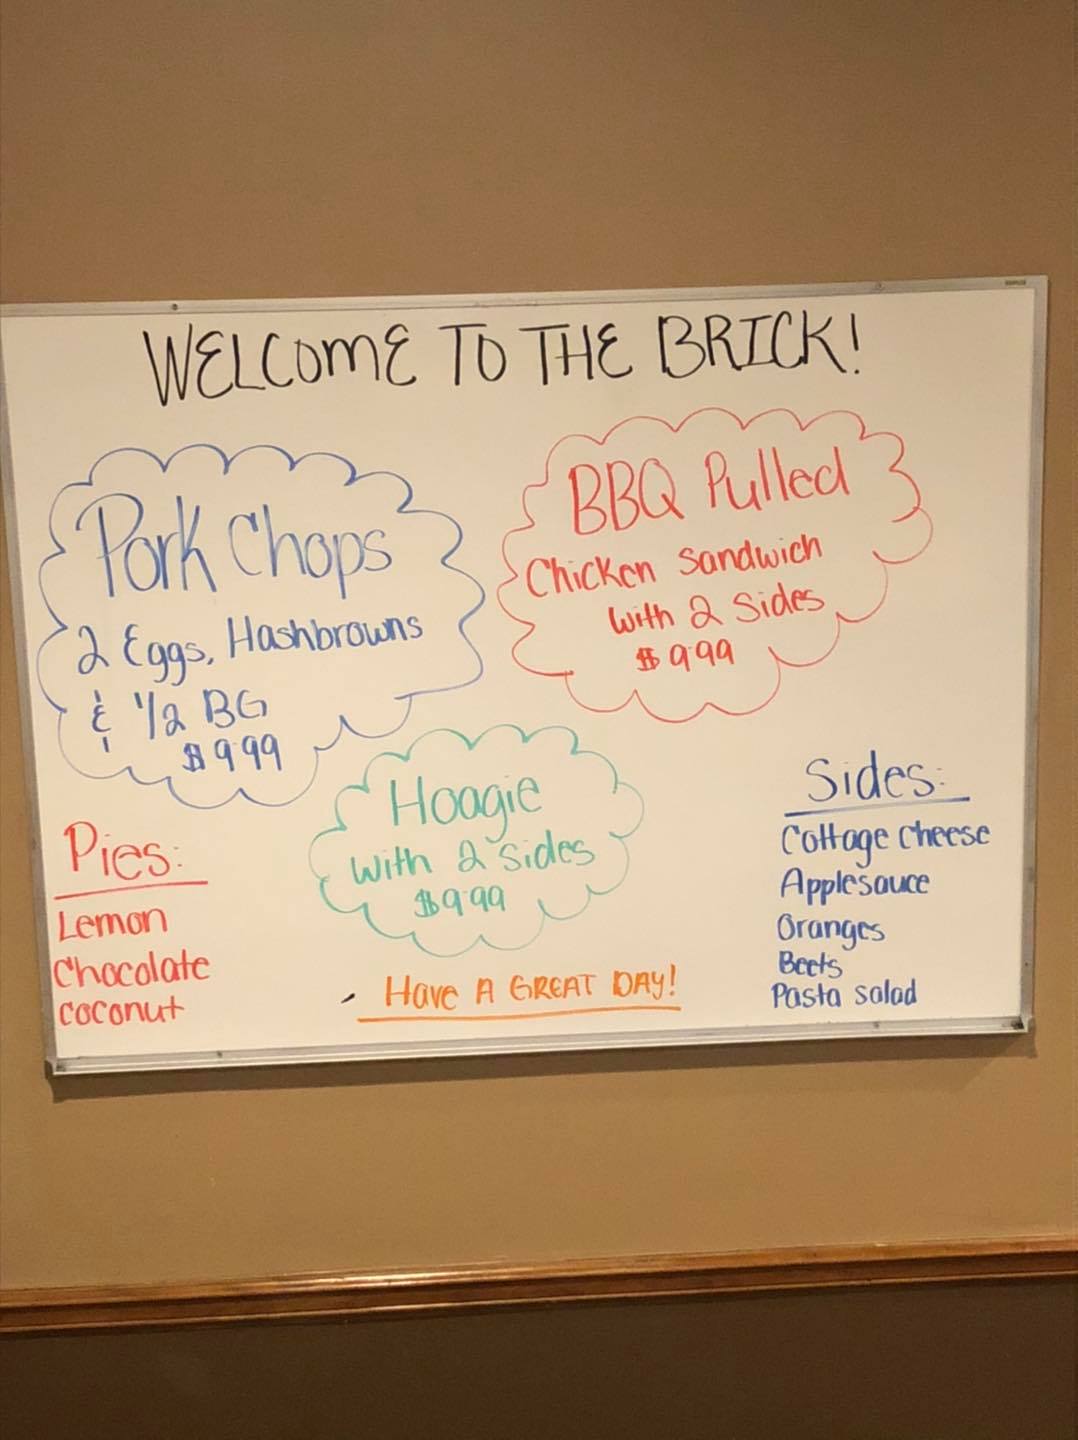 WELCOME TO THE BRICK!
Pork Chops
2 Eggs, Hashbrowns
& 1/2 BG
$9.99
BBQ Pulled
Chicken Sandwich
with 2 Sides
$9.99
Hoagie
with 2 sides
$9.99
Pies:
Lemon
Chocolate
coconut
Sides:
Cottage cheese
Applesauce
Oranges
Beets
Pasta salad
Have A GREAT DAY!